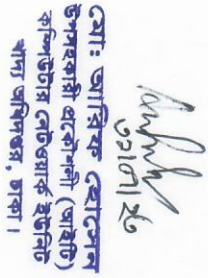 ৩১।৭।২৫
মোঃ আরিফ হোসেন
উপসহকারী প্রকৌশলী (আইটি)
কম্পিউটার নেটওয়ার্ক ইউনিট
খাদ্য অধিদপ্তর, ঢাকা।